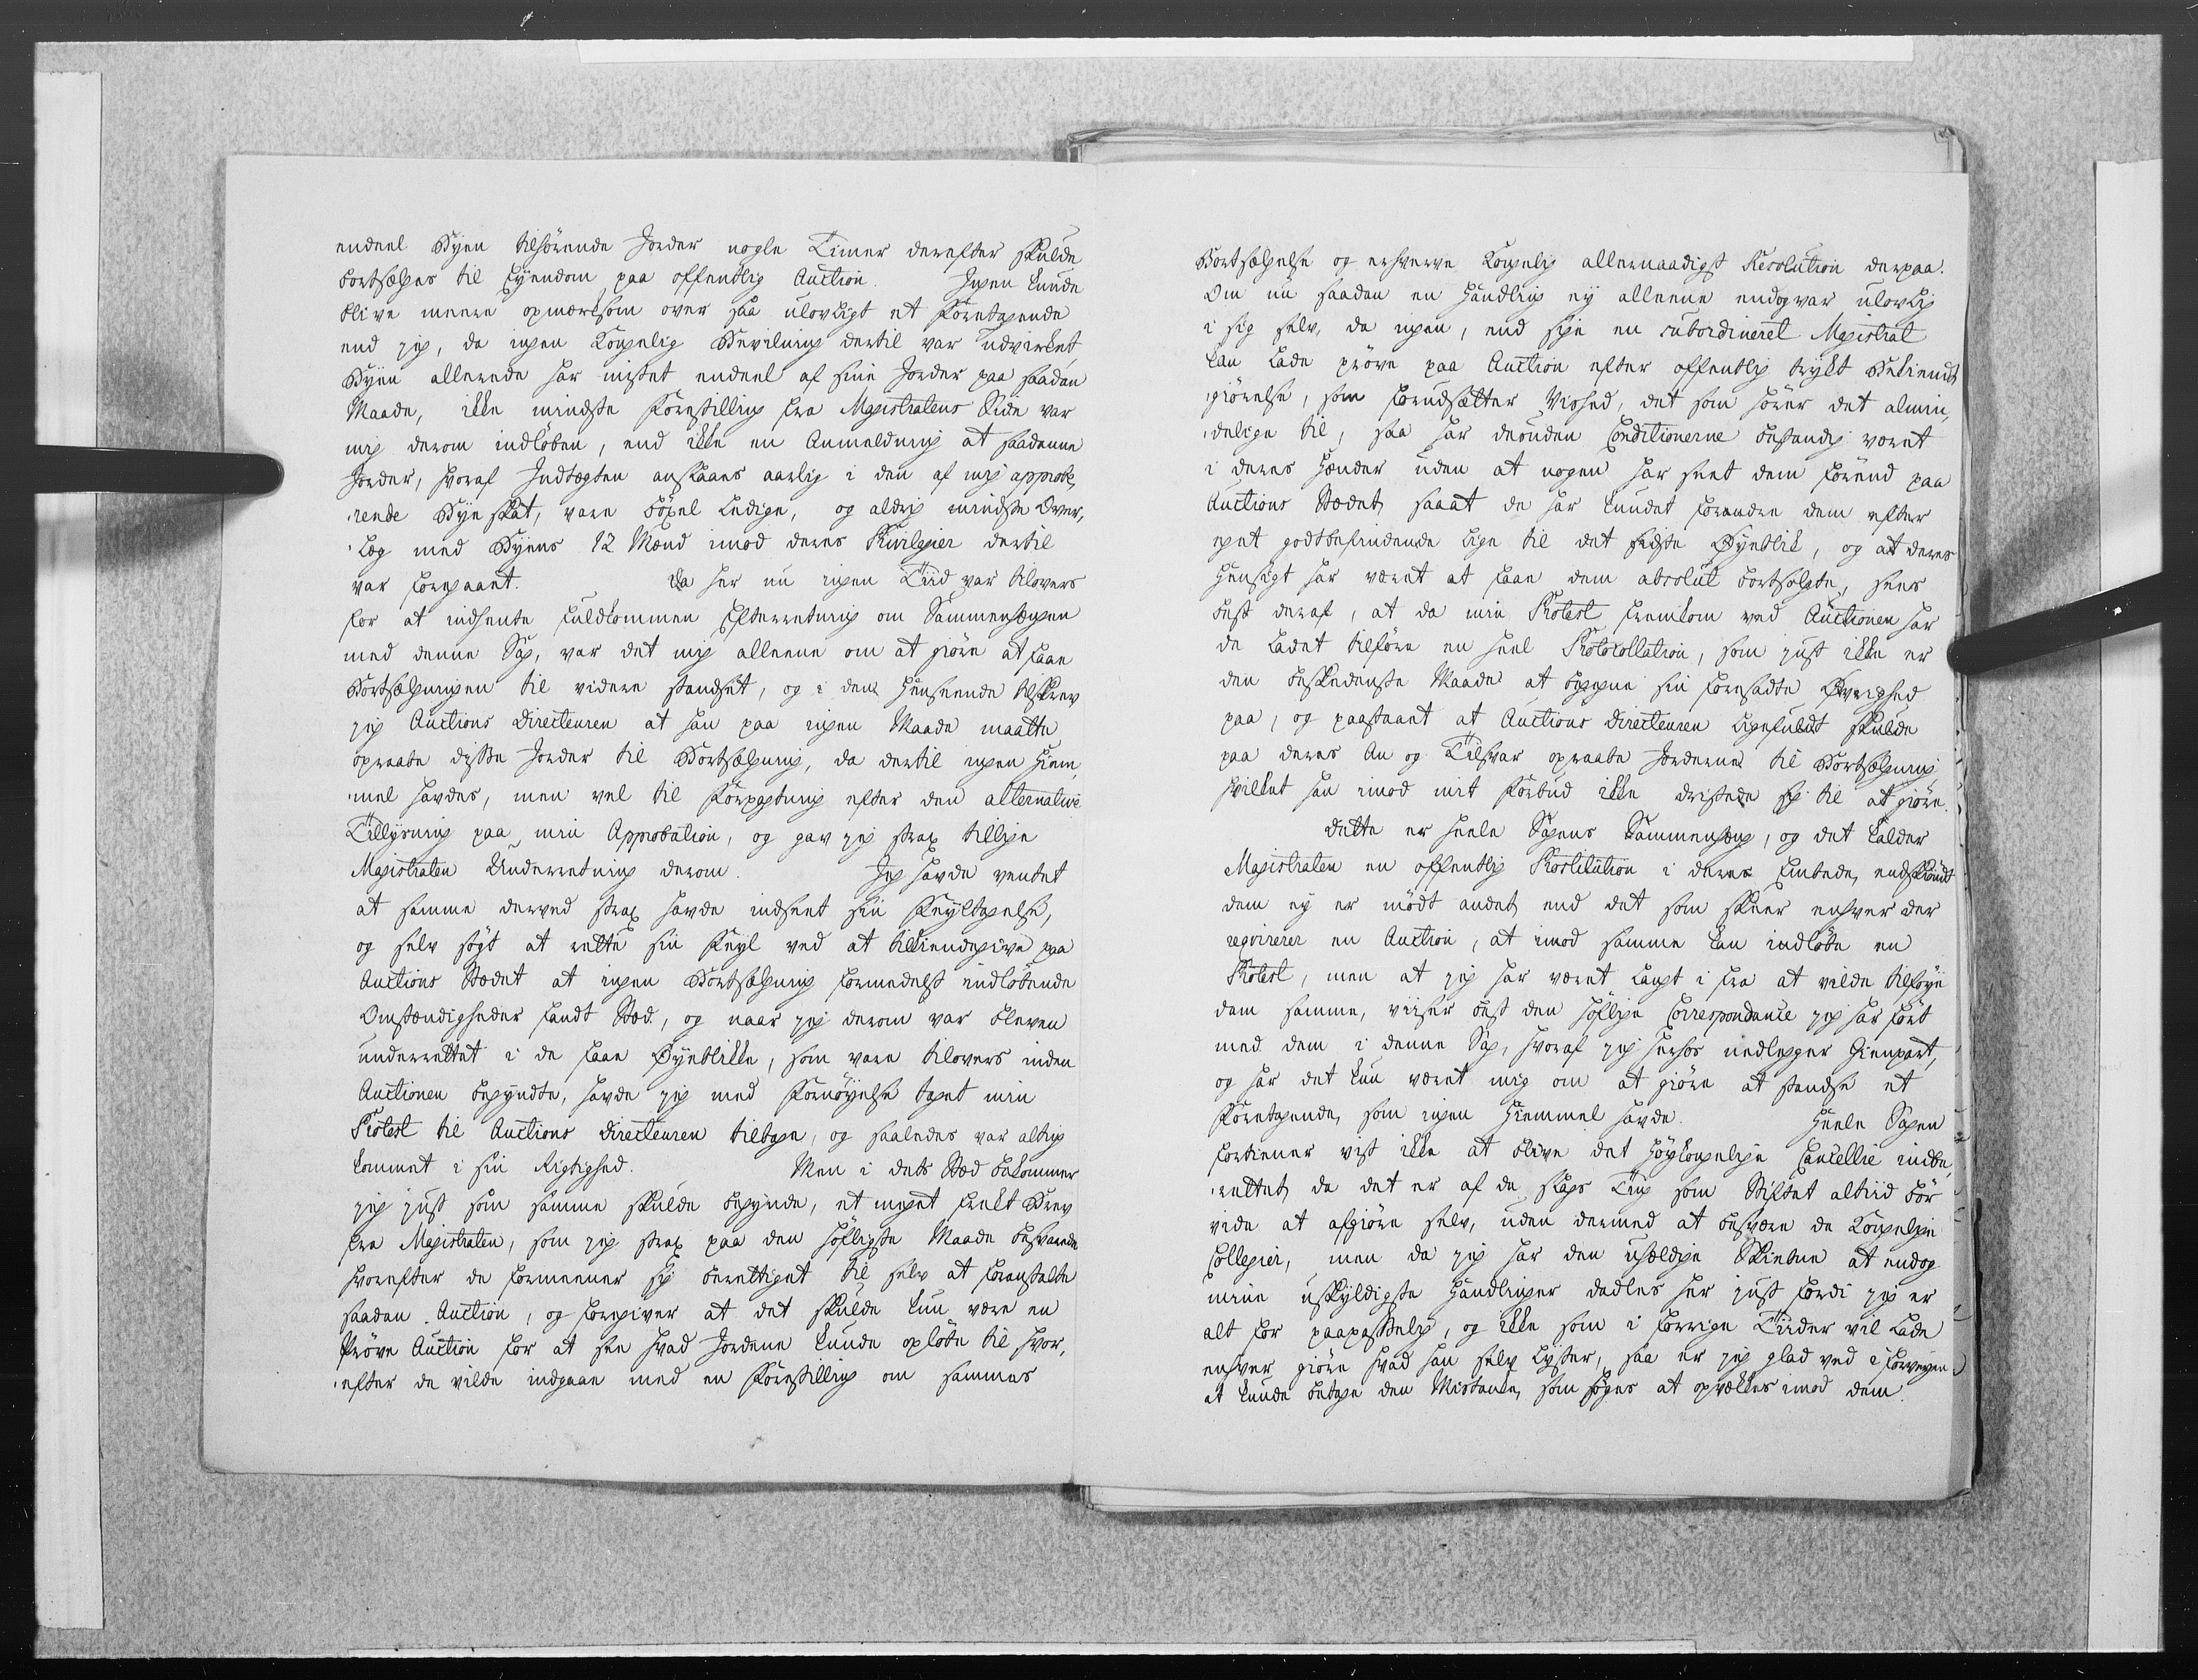 endeel Byen tilhørende Jorder nogle Timer derefter skulde
bortsælges til Eyendom paa offentlig Auction. Ingen kunde
blive meere opmærksom over saa ulovligt et Foretagende
end jeg, da ingen Kongelig Bevilning dertil var udvirket
Byen allerede har mistet endeel af sine Jorder paa saadan
Maade, ikke mindste Forestilling fra Magistratens Side var
mig derom indløben, end ikke en Anmeldning at saadanne
Jorder, hvoraf Indtægten anslaaes aarlig i den af mig approbe,
rende Bye skat, vare bøxel Ledige, og aldrig mindste Over,
læg med Byens 12 Mænd imod deres Privilegier dertil
var foregaaet. Da her nu ingen Tiid var tilovers
for at indhente fuldkommen Efterretning om Sammenhængen
med denne Sag, var det mig alleene om at giøre at faae
Bortsælgningen til videre standset, og i den Henseende tilskrev
jeg Auctions Directeuren at han paa ingen Maade maatte
opraabe disse Jorder til Bortsælgning, da dertil ingen Hiem,
mel havdes, men vel til Forpagtning efter den alternative
Tillysning paa min Approbation, og gav jeg strax tillige
Magistraten Underretning derom. Jeg havde ventet
at samme derved strax havde indseet sin Feyltagelse,
og selv søgt at rette sin Feyl ved at tilkiendegive paa
Auctions Stædet at ingen Bortsælgning formedelst indløbende
Omstændigheder fandt Stæd, og naar jeg derom var bleven
underrettet i de faae Øyeblikke, som vare tilovers inden
Auctionen begyndte, havde jeg med Fornøyelse taget min
Protest til Auctions Directeuren tilbage, og saaledes var alting
kommet i sin Rigtighed. Men i dets Stæd bekommer
jeg just som samme skulde begynde, et meget frekt Brev
fra Magistraten, som jeg strax paa den høfligste Maade besvarede
hvorefter de formeener sig berettiget til selv at foranstalte
saadan Auction, og foregiver at det skulde kun være en
Prøve Auction for at see hvad Jordene kunde opløbe til hvor,
efter de vilde indgaae med en Forestilling om sammes
Bortsælgelse og erhverve Kongelig allernaadigst Resolution derpaa.
Om nu saadan en Handling ey alleene endog var ulovlig
i sig selv, da ingen, end sige en subordineret Magistrat
kan lade prøve paa Auction efter offentlig trykt Bekiendt
giørelse, som forudsætter Vished, det som hører det almin,
delige til, saa har desuden Conditionerne bestandig været
i deres Hænder uden at nogen har seet dem førend paa
Auctions Stædet, saaat de har kundet forandre dem efter
eget godtbefindende lige til det sidste Øyeblik, og at deres
Hensigt har været at faae dem absolut bortsolgte, sees
best deraf, at da min Protest fremkom ved Auctionen har
de ladet tilføre en heel Protocollation, som just ikke er
den beskedenste Maade at begegne sin foresadte Øvrighed
paa, og paastaaet at Auctions Directeuren ligefuldt skulde
paa deres An og Tilsvar opraabe Jorderne til Bortsælgning,
hvilket han imod mit Forbud ikke dristede sig til at giøre.
Dette er heele Sagens Sammenhæng, og det kalder
Magistraten en offentlig Prostitution i deres Embede, endskiøndt
dem ey er mødt andet, end det som skeer enhver der
reqvirerer en Auction, at imod samme kan indløbe en
Protest, men at jeg har været langt i fra at vilde tilføye
dem samme, viiser best den høflige Correspondance jeg har ført
med dem i denne Sag, hvoraf jeg herhos nedlegger Gienpart,
og har det kun været mig om at giøre at standse et
Foretagende, som ingen Hiemmel havde. Heele Sagen
fortiener vist ikke at blive det høykongelige Cancellie indbe,
rettet, da det er af de slags Ting som Stiftet altiid bør
vide at afgiøre selv, uden dermed at besvære de Kongelige
Collegier, men da jeg har den uheldige Skiebne at endog
mine uskyldigste Handlinger dadles her just fordi jeg er
alt for paapasselig, og ikke som i forrige Tiider vil lade
enhver giøre hvad han selv lyster, saa er jeg glad ved i forveyen
at kunde betage den Mistanke, som søges at opvækkes imod dem.